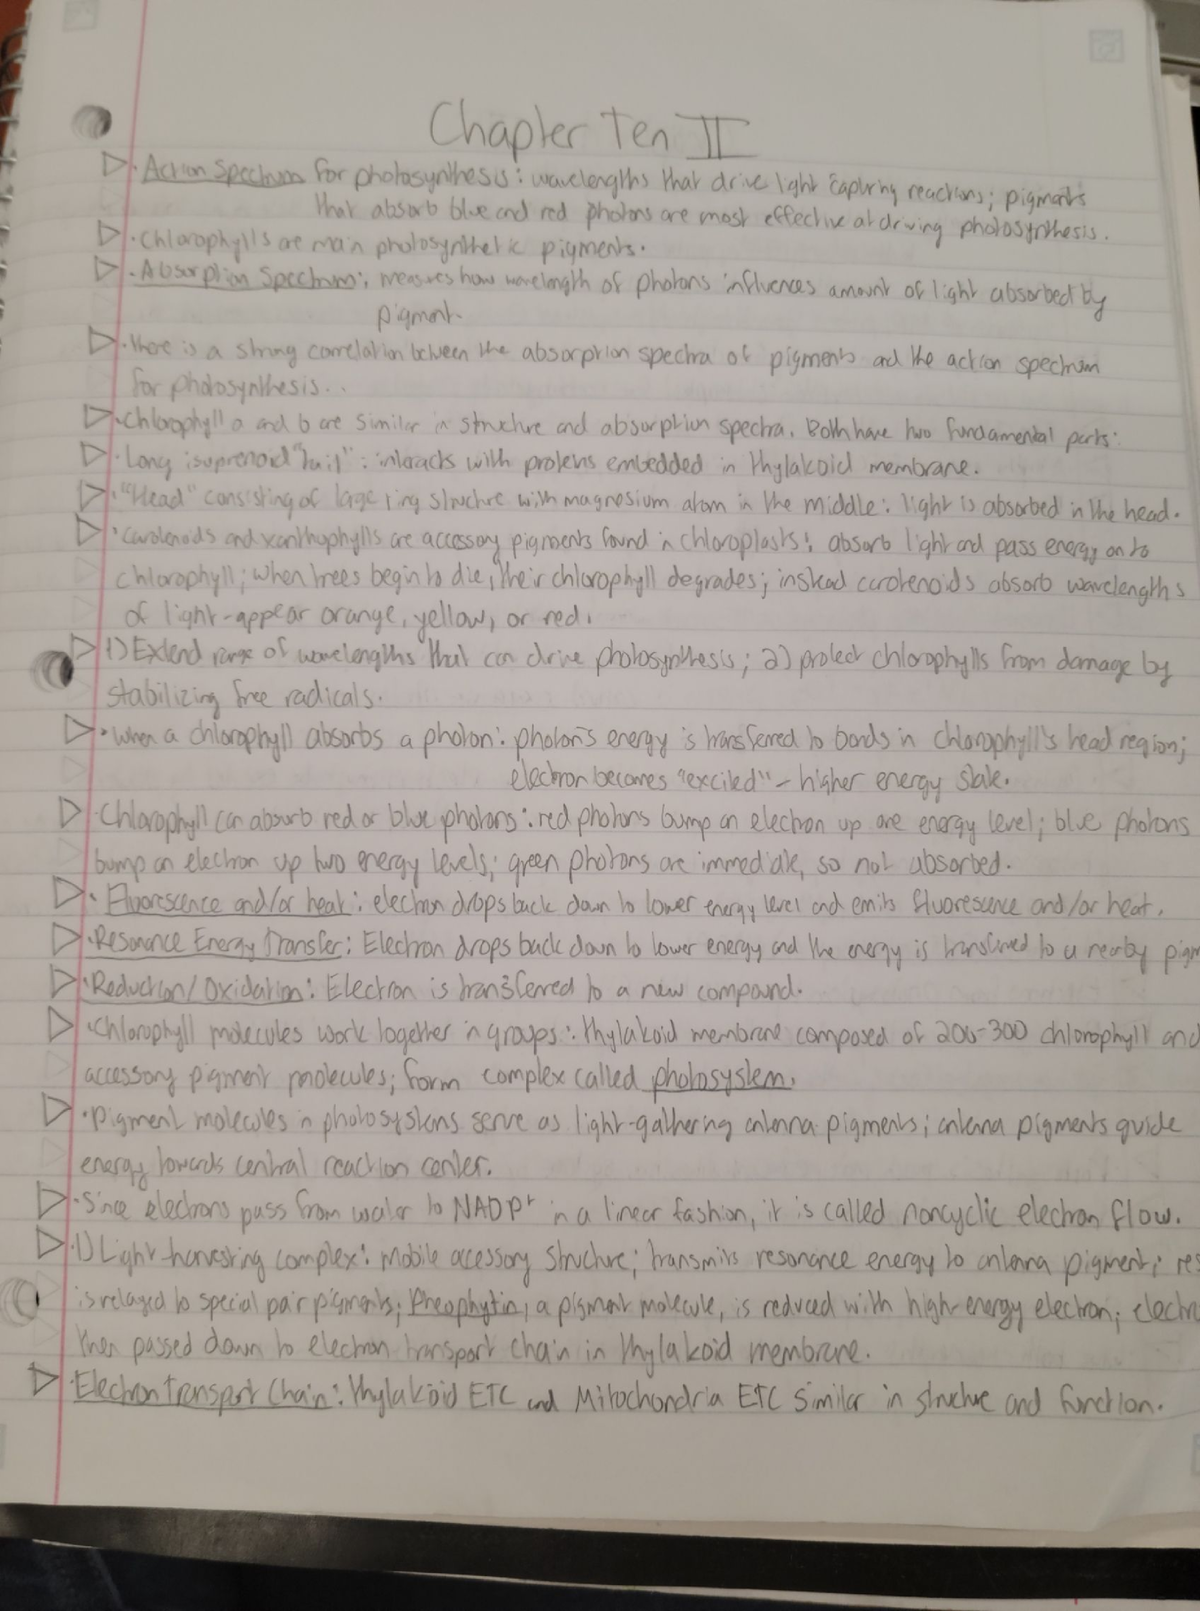 Chapter Ten II
· Action Spectrum for photosynthesis: wavelengths that drive light capturing reactions; pigments
that absorb blue and red photons are most effective at driving photosynthesis.
· Chlorophylls are main photosynthetic pigments.
· Absorption Spectrum: measures how wavelength of photons influences amount of light absorbed by
pigment.
· there is a strong correlation between the absorption spectra of pigments and the action spectrum
for photosynthesis..
· Chlorophyll a and b are similar in structure and absorption spectra. Both have two fundamental parts:
· Long isoprenoid "tail": interacts with proteins embedded in thylakoid membrane.
· "Head" consisting of large ring structure with magnesium atom in the middle: light is absorbed in the head.
· Carotenoids and xanthophylls are accessory pigments found in chloroplasts: absorb light and pass energy on to
chlorophyll; when trees begin to die, their chlorophyll degrades; instead carotenoids absorb wavelengths
of light-appear orange, yellow, or red.
1) Extend range of wavelengths that can drive photosynthesis; 2) protect chlorophylls from damage by
stabilizing free radicals.
· when a chlorophyll absorbs a photon: photon's energy is transferred to bonds in chlorophyll's head region;
electron becomes "excited" - higher energy state.
· Chlorophyll can absorb red or blue photons: red photons bump an electron up one energy level; blue photons
bump an electron up two energy levels; green photons are immediate, so not absorbed.
· Fluorescence and/or heat: electron drops back down to lower energy level and emits fluoresence and/or heat.
· Resonance Energy Transfer: Electron drops back down to lower energy and the energy is transferred to a nearby pigm
· Reduction/Oxidation: Electron is transferred to a new compound.
· Chlorophyll molecules work together in groups: thylakoid membrane composed of 200-300 chlorophyll and
accessory pigment molecules; form complex called photosystem.
· pigment molecules in photosystems serve as light-gathering antenna pigments; antenna pigments guide
energy towards central reaction center.
· Since electrons pass from water to NADP+ in a linear fashion, it is called noncyclic electron flow.
· 1) Light-harvesting complex: mobile accessory structure; transmits resonance energy to antenna pigment; res
is relayed to special pair pigments; Pheophytin, a pigment molecule, is reduced with high-energy electron; electr
then passed down to electron transport chain in thylakoid membrane.
· Electron Transport Chain: Thylakoid ETC and Mitochondria ETC similar in structure and function.